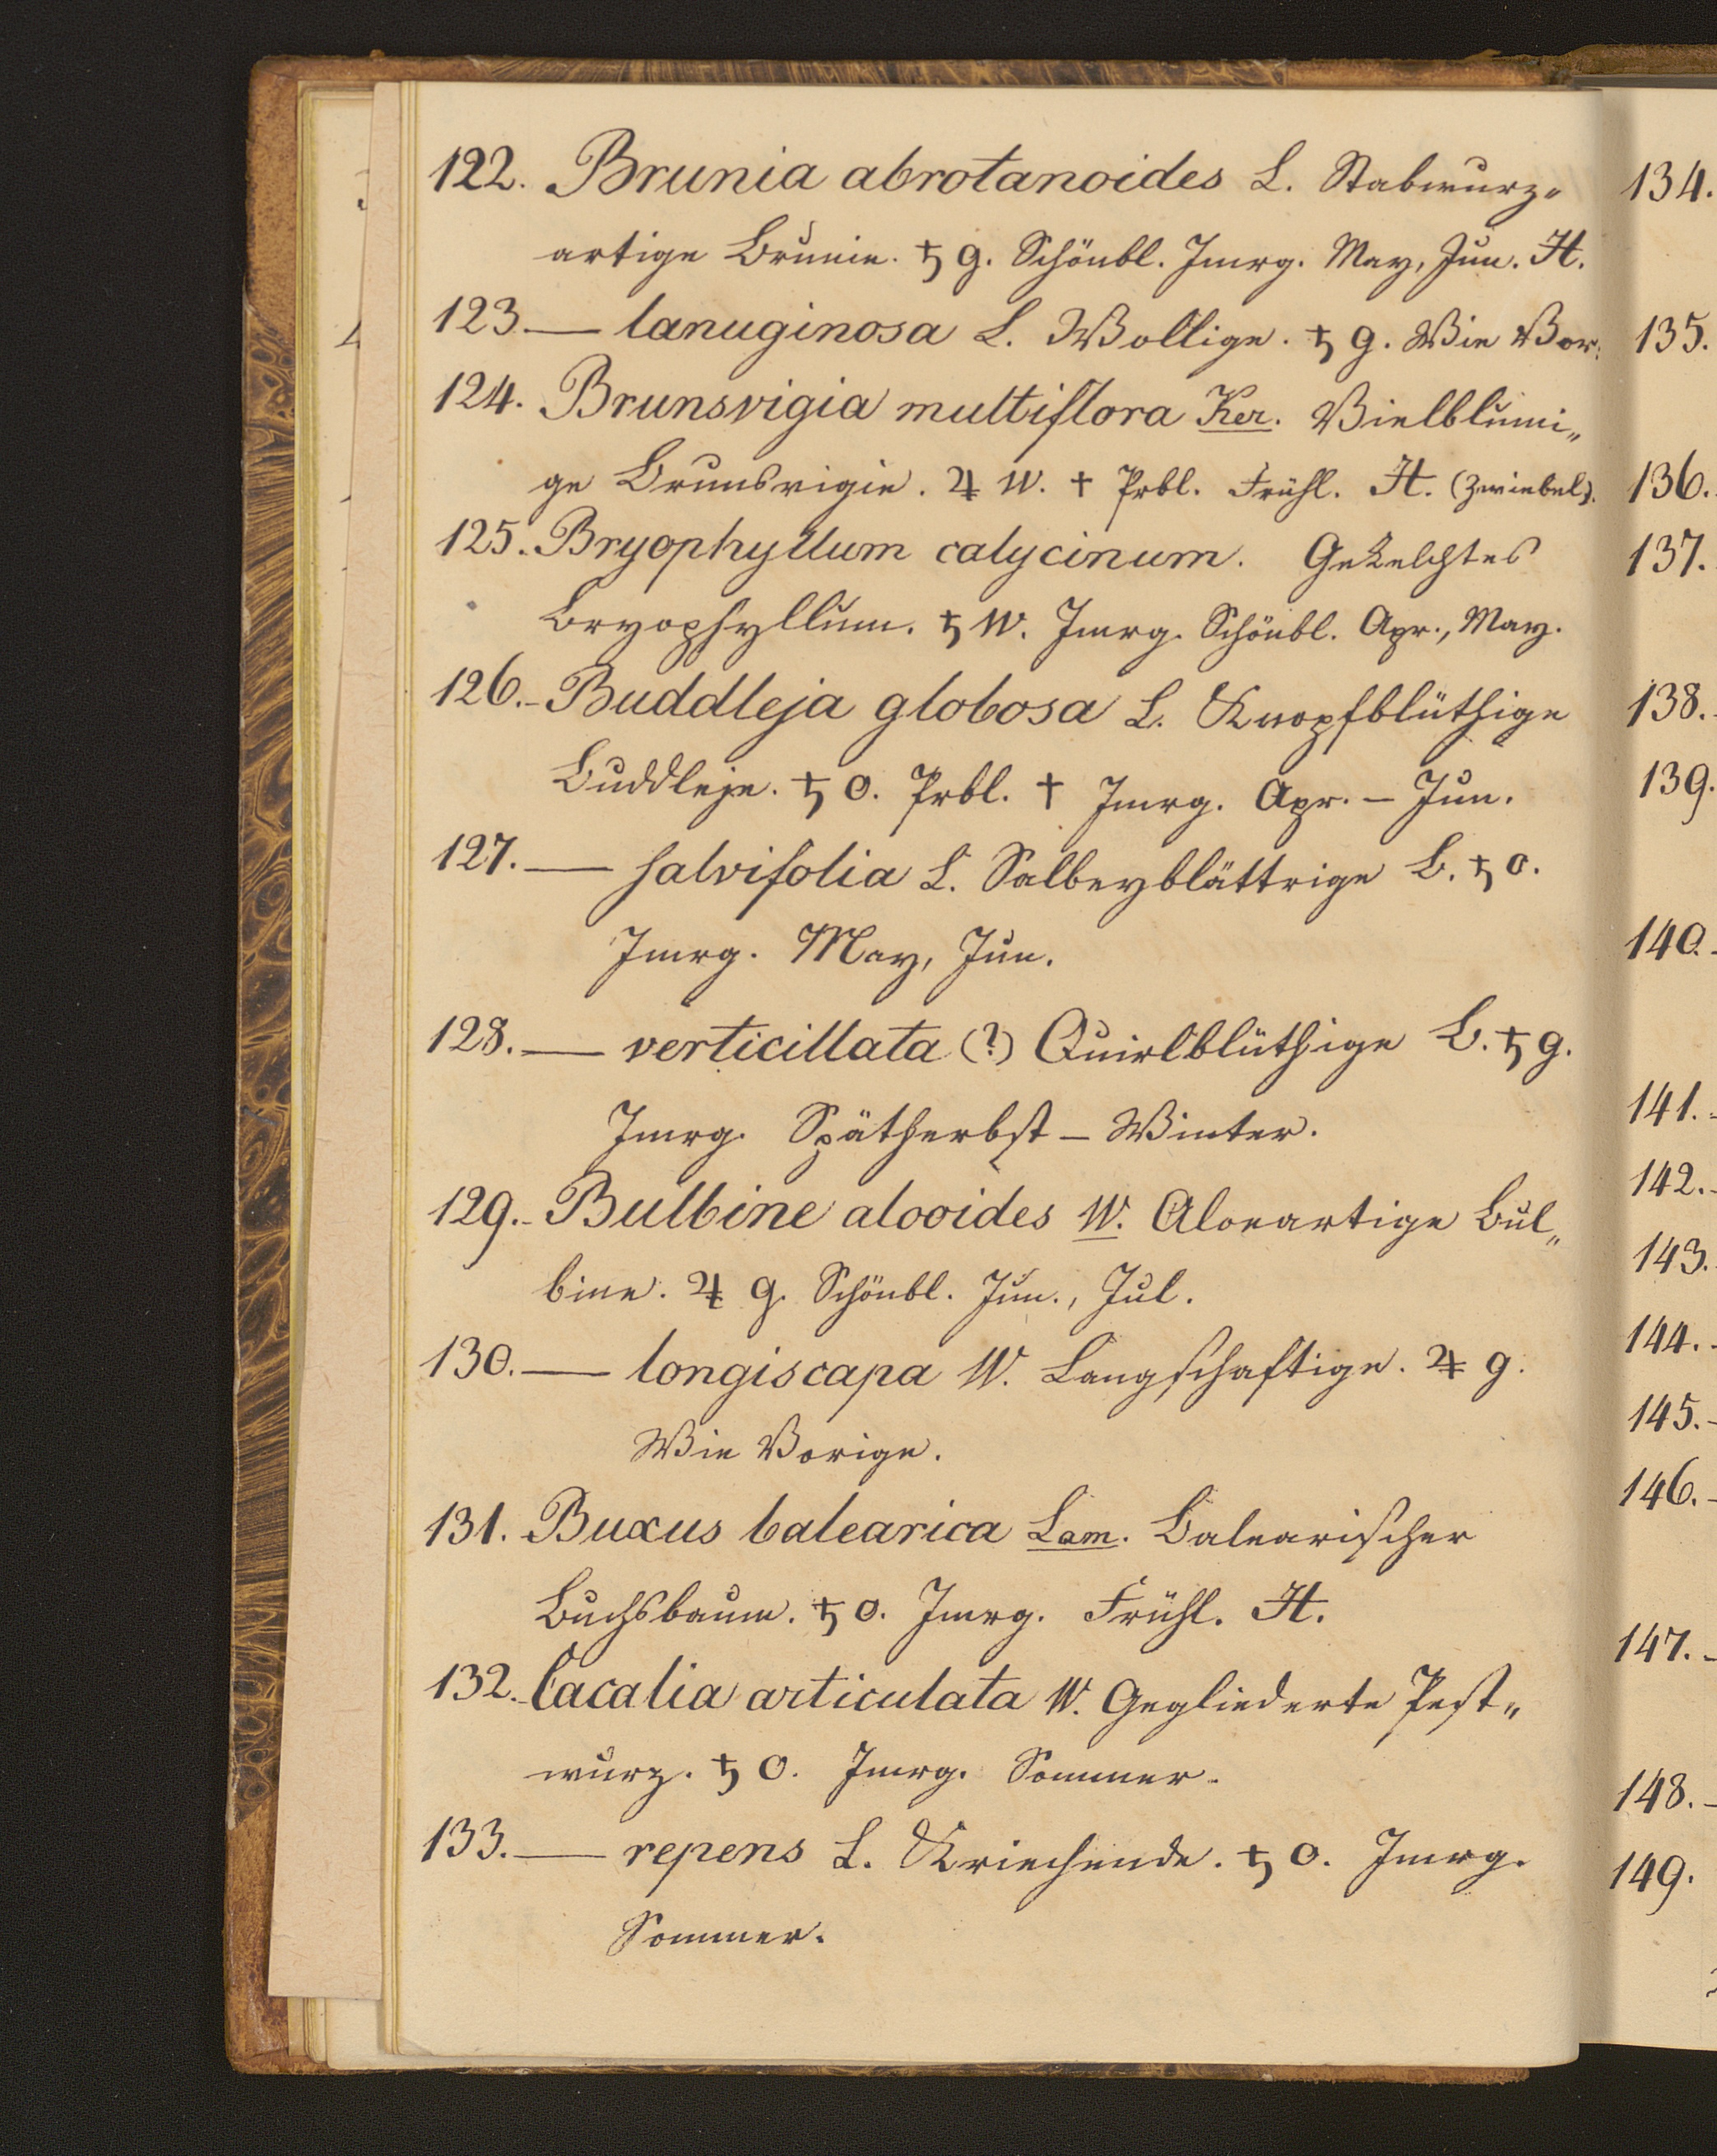 122. Brunia abrotanoides L. Stabwurz-
artige Brunie. ♄ g. Schönbl. Jmrg. May, Jun. H.
123. — lanuginosa L. Wollige. ♄ g. Wie Vor:
124. Brunsvigia multiflora Ker. Vielblumi„
ge Brunsvigie. ♃ W. † Prbl. Frühl. H. (Zwiebel).
125. Bryophyllum calycinum. Gekelchtes
Bryophyllum. ♄ W. Jmrg. Schönbl. Apr., May.
126. - Buddleja globosa L. Knopfblüthige
Buddleje. ♄ o. Prbl. † Jmrg. Apr. – Jun.
127. — salvifolia L. Salbeyblättrige B. ♄ o.
Jmrg. May, Jun.
128. — verticillata (?) Quirlblüthige B. ♄ g.
Jmrg. Spätherbst – Winter.
129. - Bulbine alooides W. Aloeartige Bul„
bine. ♃ g. Schönbl. Jun., Jul.
130. — longiscapa W. Langschaftige. ♃ g.
Wie Vorige.
131. Buxus balearica Lam. Balearischer
Buchsbaum. ♄ o. Jmrg. Frühl. H.
132. Cacalia articulata W. Gegliederte Pest„
wurz. ♄ o. Jmrg. Sommer.
133. — repens L. Kriechende. ♄ o. Jmrg.
Sommer.
134.
135.
136.
137.
138.
139.
140.
141.
142.
143.
144.
145.
146.
147.
148.
149.